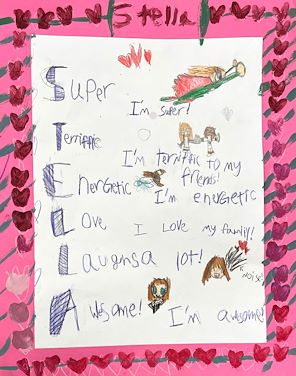 Stella
Super
I'm super!
Terrific
I'm terrific to my
friends!
Energetic
I'm energetic
Love I Love my family!
Laughs a lot!
NOISE
Awesome! I'm awesome!